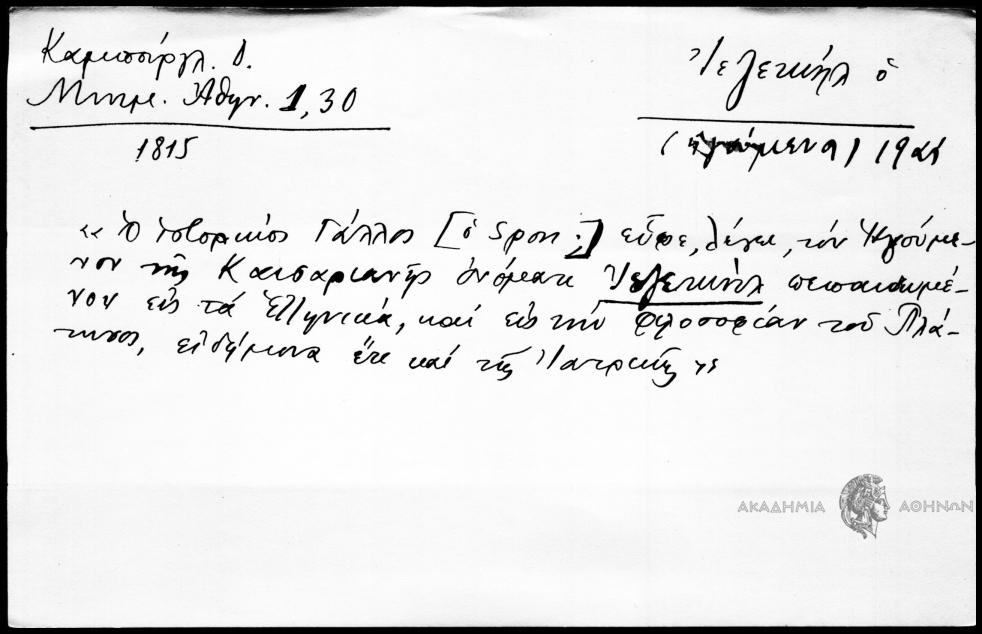 Καμπούργλ. Δ.
Μνημ. Ἀθην. 1, 30
1815
Ἰεζεκιήλ ὁ
« Ὁ ἱστορικός Γάλλος [ὁ Spon ;] εὗρε, λέγει, τόν Ἡγούμε-
νον τῆς Καισαριανῆς ὀνόματι Ἰεζεκιήλ πεπαιδευμέ-
νον εἰς τά Ἑλληνικά, καί εἰς τήν φιλοσοφίαν τοῦ Πλά-
τωνος, εἰδήμονα ἔτι καί τῆς Ἰατρικῆς »
ΑΚΑΔΗΜΙΑ ΑΘΗΝΩΝ